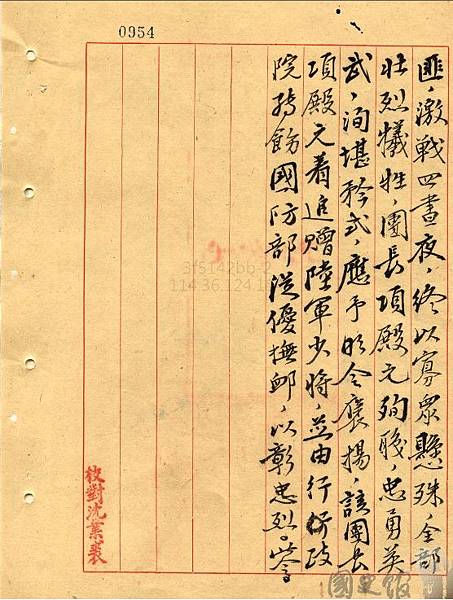 0954
匪，激戰四晝夜，終以寡眾懸殊，全部
壯烈犧牲，團長項殿元殉職，忠勇英
武，洵堪矜式，應予明令褒揚，該團長
項殿元着追贈陸軍少將，並由行政
院轉飭國防部從優撫卹，以彰忠烈。此令
校對沈業裘
3f5142bb-
114.36.124.1
國史館